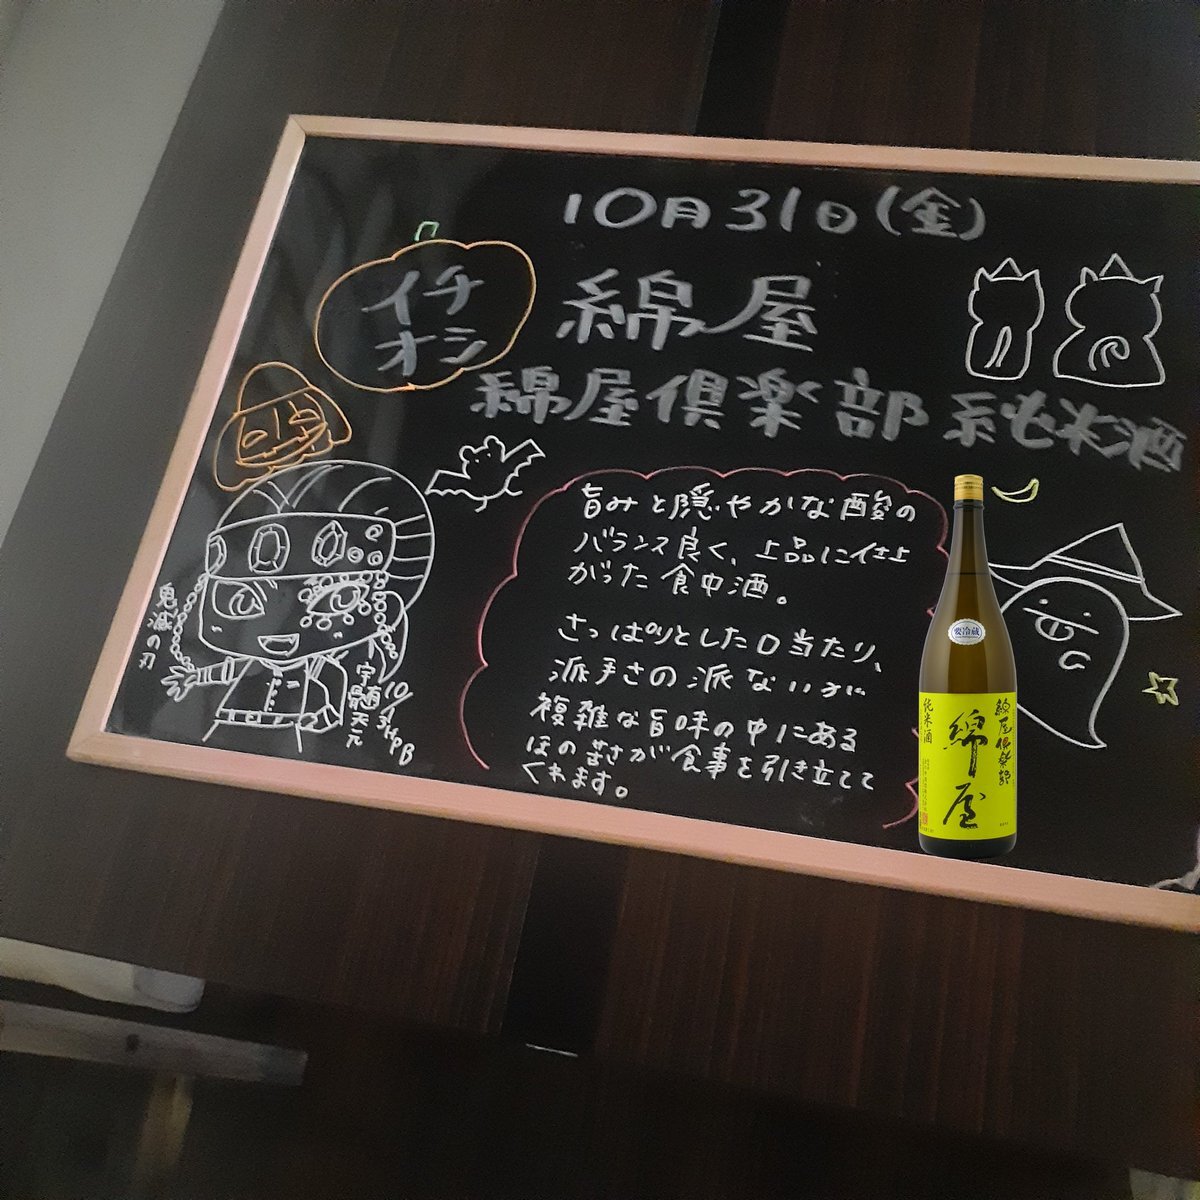 10月31日(金)
イチ
オシ
綿屋
綿屋倶楽部 純米酒
旨みと隠やかな酸の
バランス良く、上品に仕上
がった食中酒。
さっぱりとした口当たり、
派手さの派ないが
複雑な旨味の中にある
ほの苦さが食事を引き立てて
くれます。
鬼滅の刃
宇髄天元
10/31HPB
要冷蔵
綿屋倶楽部
綿屋
純米酒